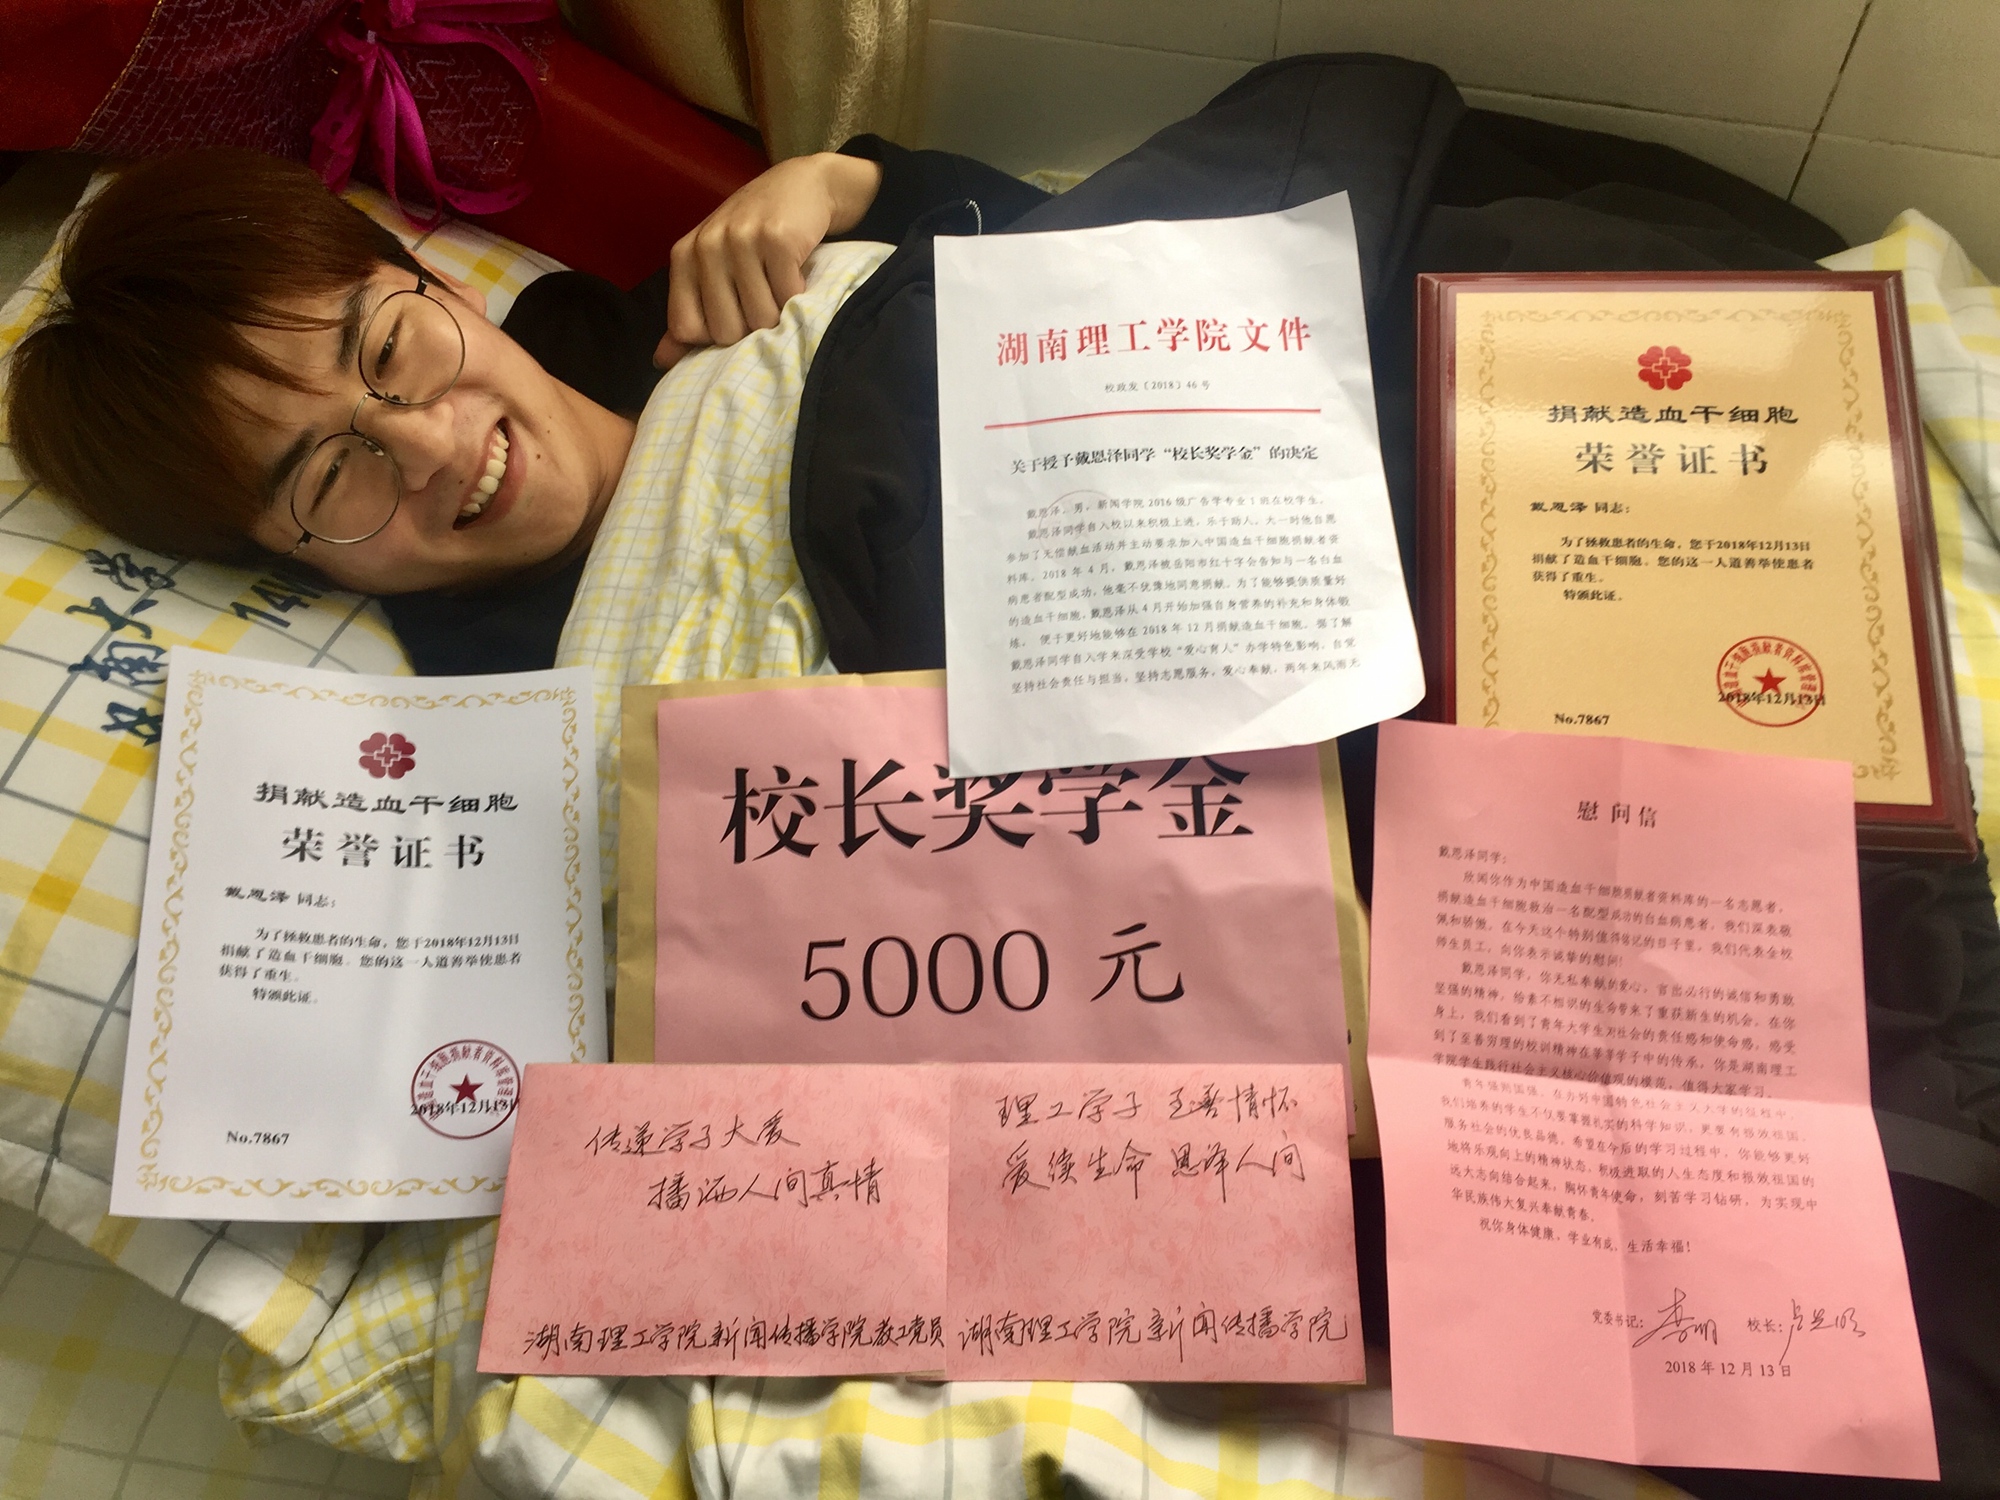 湖南理工学院文件
校政发〔2018〕46号
关于授予戴恩泽同学“校长奖学金”的决定
戴恩泽,男,新闻学院2016级广告学专业1班在校学生。
戴恩泽同学自入校以来积极上进,乐于助人,大一时他自愿
参加了无偿献血活动并主动要求加入中国造血干细胞捐献者资
料库。2018年4月,戴恩泽被岳阳市红十字会告知与一名白血
病患者配型成功,他毫不犹豫地同意捐献。为了能够提供质量好
的造血干细胞,戴恩泽从4月开始加强自身营养的补充和身体锻
炼, 便于更好地能够在2018年12月捐献造血干细胞。据了解
戴恩泽同学自入学来深受学校“爱心育人”办学特色影响,自觉
坚持社会责任与担当,坚持志愿服务,爱心奉献,两年来风雨无
捐献造血干细胞
荣誉证书
戴恩泽 同志:
为了拯救患者的生命,您于2018年12月13日
捐献了造血干细胞。您的这一人道善举使患者
获得了重生。
特颁此证。
2018年12月13日
No.7867
捐献造血干细胞
荣誉证书
戴恩泽 同志:
为了拯救患者的生命,您于2018年12月13日
捐献了造血干细胞。您的这一人道善举使患者
获得了重生。
特颁此证。
2018年12月13日
No.7867
校长奖学金
5000 元
传递学子大爱
播洒人间真情
湖南理工学院新闻传播学院教工党员
理工学子 至善情怀
爱续生命 恩泽人间
湖南理工学院新闻传播学院
慰问信
戴恩泽同学:
欣闻你作为中国造血干细胞捐献者资料库的一名志愿者,
捐献造血干细胞救治一名配型成功的白血病患者,我们深表敬
佩和骄傲。在今天这个特别值得铭记的日子里,我们代表全校
师生员工,向你表示诚挚的慰问!
戴恩泽同学,你无私奉献的爱心,言出必行的诚信和勇敢
坚强的精神,给素不相识的生命带来了重获新生的机会。在你
身上,我们看到了青年大学生对社会的责任感和使命感,感受
到了至善穷理的校训精神在莘莘学子中的传承。你是湖南理工
学院学生践行社会主义核心价值观的模范,值得大家学习。
青年强则国强。在办好中国特色社会主义大学的征程中,
我们培养的学生不仅要掌握扎实的科学知识,更要有报效祖国、
服务社会的优良品德。希望在今后的学习过程中,你能够更好
地将乐观向上的精神状态、积极进取的人生态度和报效祖国的
远大志向结合起来,胸怀青年使命,刻苦学习钻研,为实现中
华民族伟大复兴奉献青春。
祝你身体健康、学业有成、生活幸福!
党委书记: 校长:
2018年12月13日